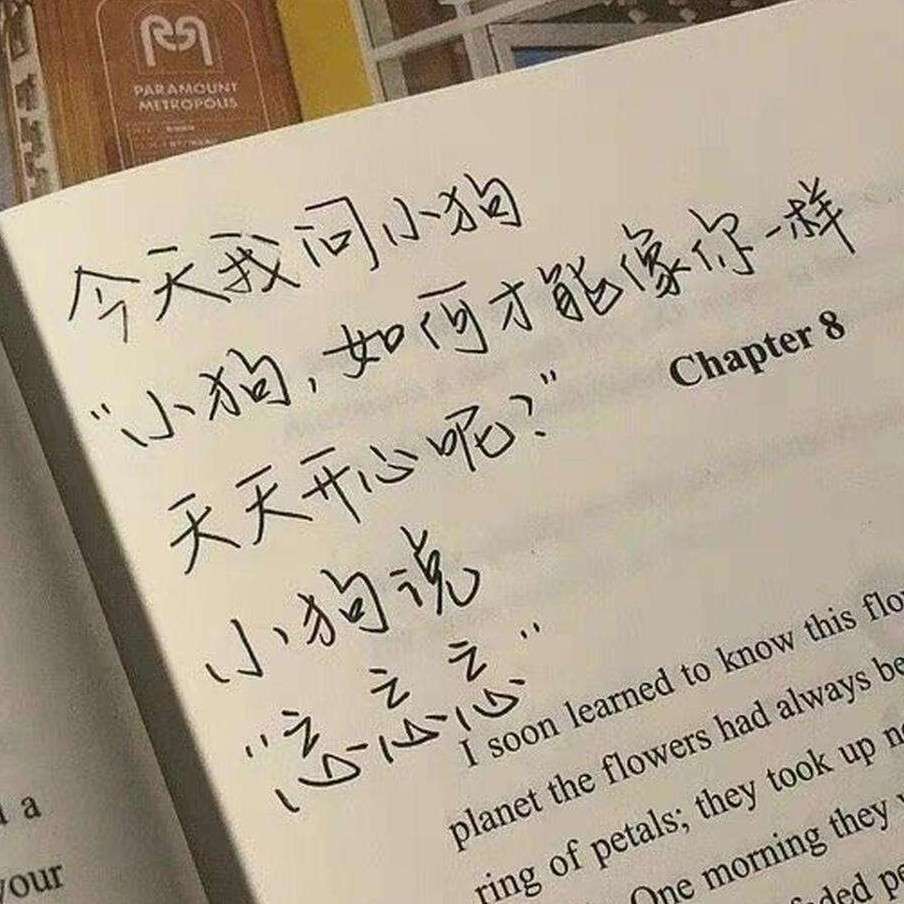 PARAMOUNT
METROPOLIS
今天我问小狗
"小狗,如何才能像你一样
天天开心呢?"
小狗说
"忘忘忘"
Chapter 8
I soon learned to know this flo
planet the flowers had always be
ring of petals; they took up
One morning they
a
your